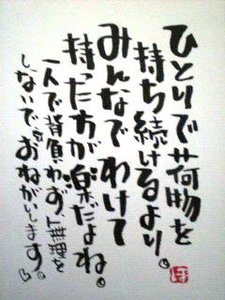 ひとりで荷物を
持ち続けるより。
みんなでわけて
持った方が楽だよね。
一人で背負わず、無理を
しないで。おねがいします。♡